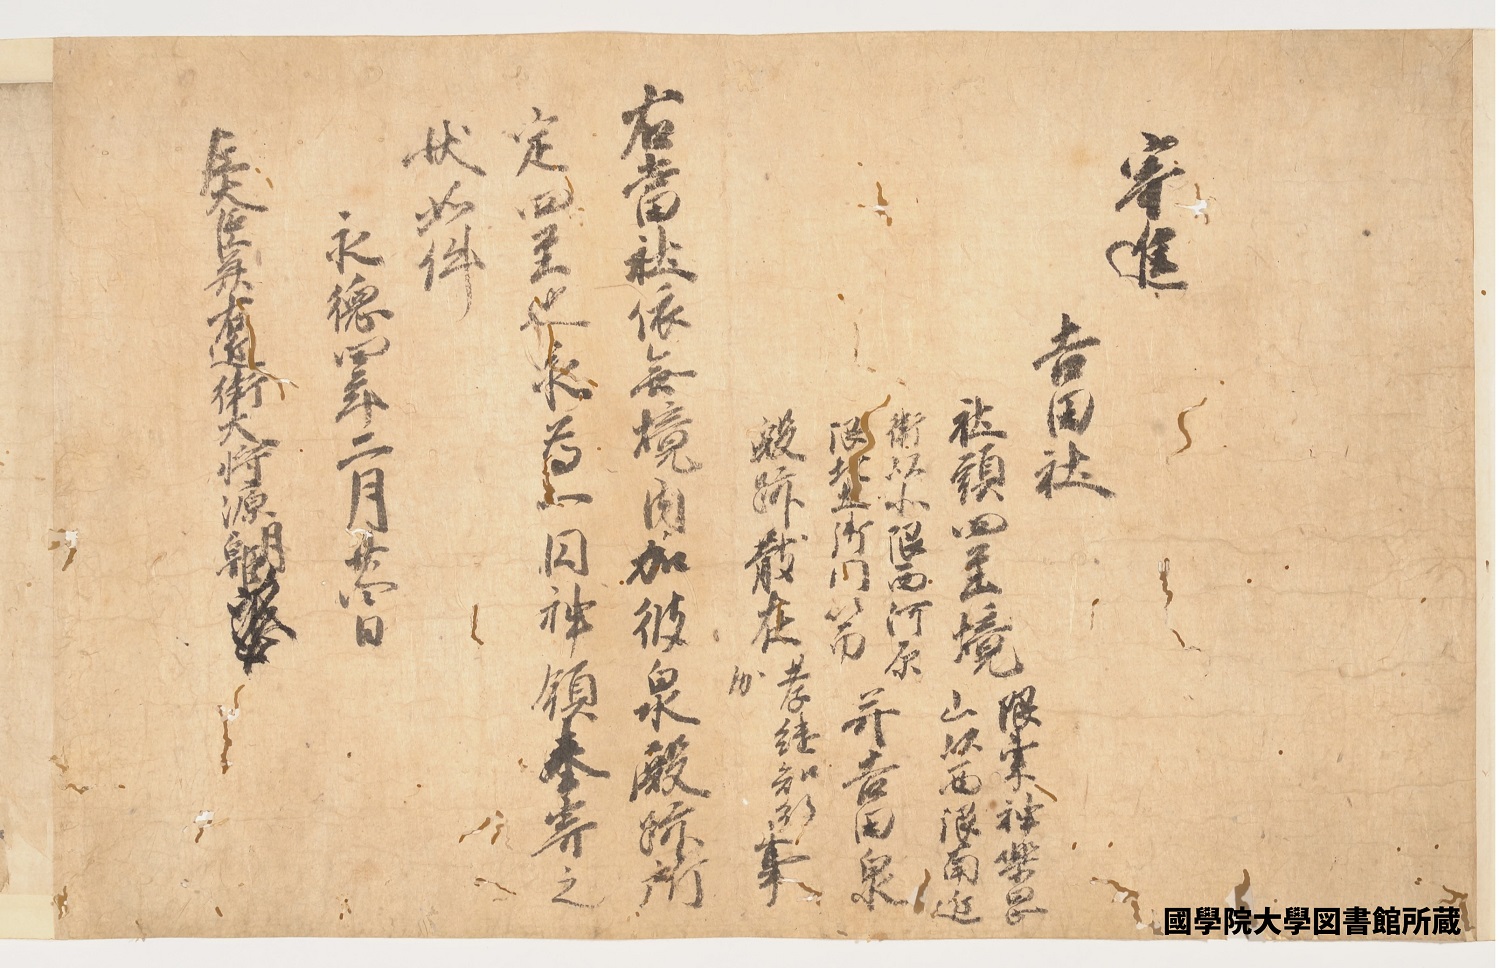 寄進
吉田社
社頭四至境 限東神楽岡
山以西限南近
衛以北限西河原
限北土御門以南 并吉田泉
殿跡散在 孝継知行
分 事
右當社依無境内加彼泉殿跡所
定四至也永為一円神領奉寄之
状如件
永徳四年二月廿四日
左大臣兼右近衛大将源朝臣
國學院大學図書館所蔵